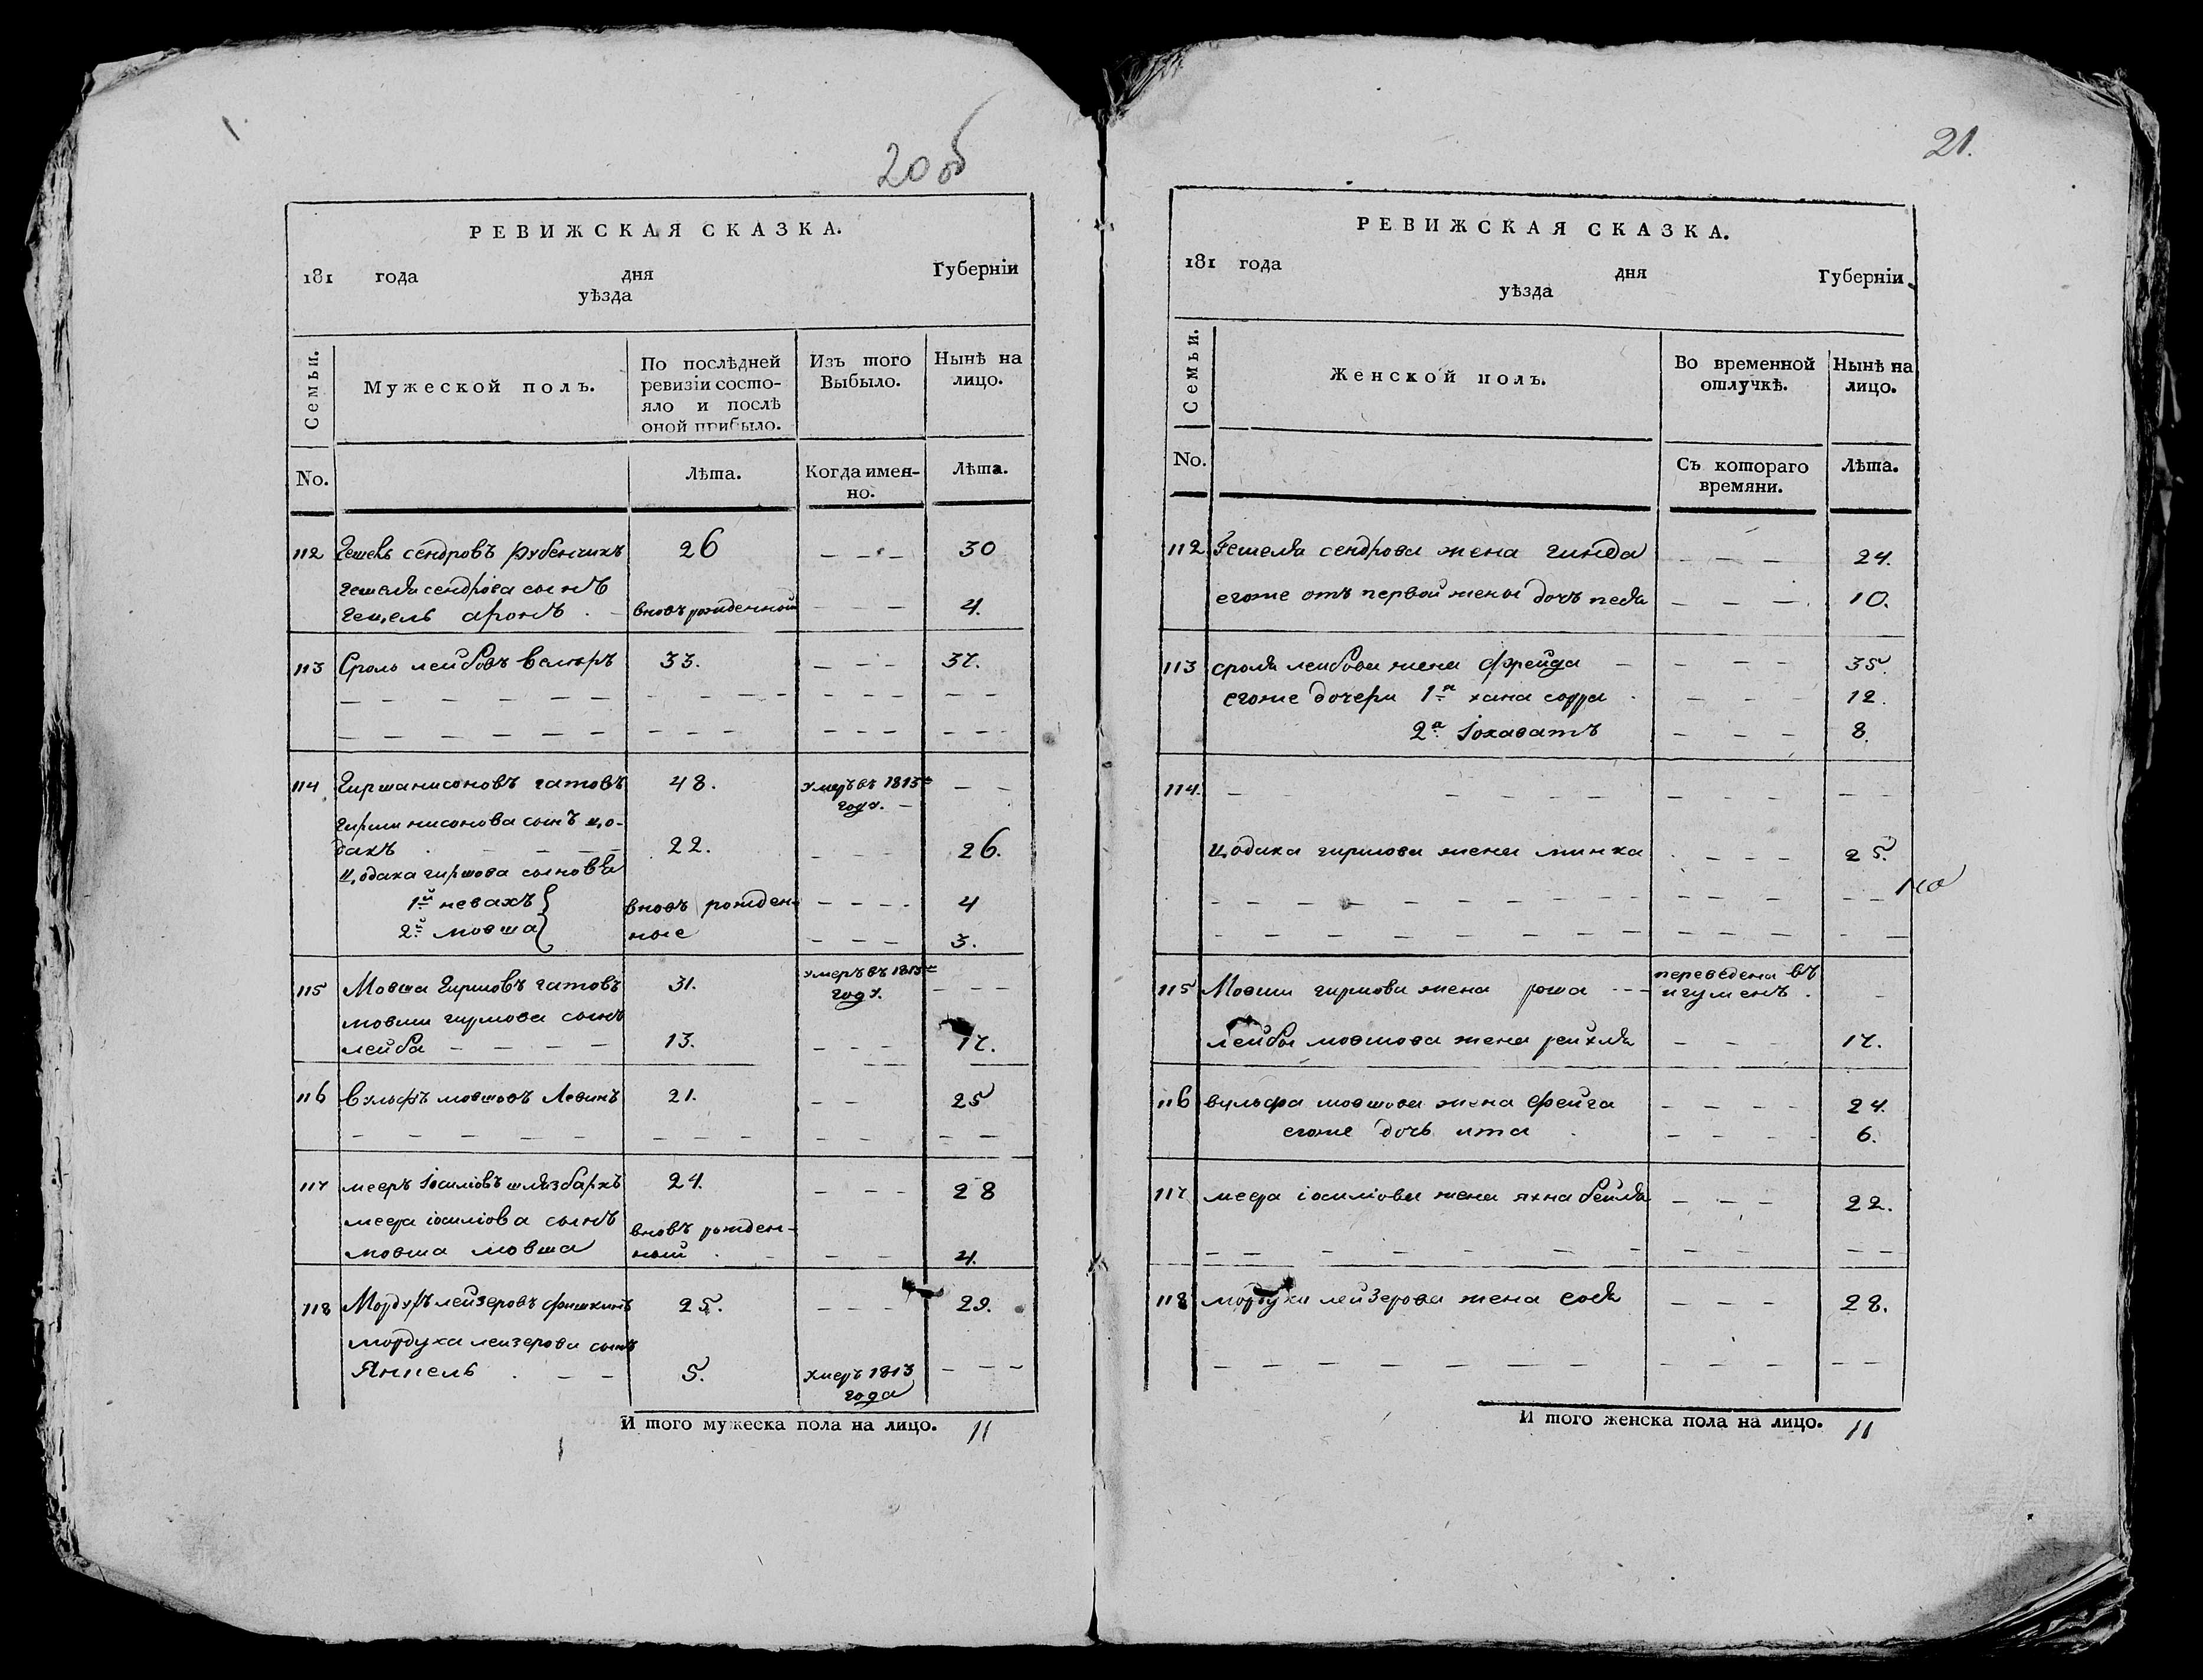 20 об
РЕВИЖСКАЯ СКАЗКА.
181 года дня Губерніи
уѣзда
Семьи.
Мужеской полъ.
По послѣдней
ревизіи состо-
яло и послѣ
оной прибыло.
Изъ того
Выбыло.
Нынѣ на
лицо.
No.
Лѣта.
Когда имен-
но.
Лѣта.
112 Гешель сендровъ рубенчикъ 26 — — — 30
гешеля сендрова сынъ
гешель аронъ . — вновь рожденной — — — 4.
113 Сроль лейбовъ 33. — — — 37.
— — — — — — — — — — — — — — —
— — — — — — — — — — — — — — —
114 Гирша нисоновъ гатовъ 48. умеръ въ 1813м — —
году. —
гирши нисонова сынъ цо-
дакъ . — — — — 22. — — — 26.
цодака гиршова сыновья
1й невахъ } вновь рожден- — — — 4
2й мовша } ные — — — 3.
115 Мовша Гиршовъ гатовъ 31. умеръ въ 1813м — — —
году.
мовши гиршова сынъ
лейба — — — — 13. — — — 17.
116 Вульфъ мовшовъ Левинъ 21. — — 25
— — — — — — — — — — — —
117 мееръ іосиліовъ 24. — — — 28
меера іосиліова сынъ вновь рожден-
мовша мовша ный . — — — 4.
118 Мордухъ лейзеровъ фишкинъ 25. — — — 29.
мордуха лейзерова сынъ
Янкель . — — 5. умеръ 1813 — — —
года
И того мужеска пола на лицо. 11
21.
РЕВИЖСКАЯ СКАЗКА.
181 года дня Губерніи
уѣзда
Семьи.
Женской полъ.
Во временной
отлучкѣ.
Нынѣ на
лицо.
No.
Съ котораго
времяни.
Лѣта.
112 Гешеля сендрова жена гинда — — — 24.
егоже отъ первой жены дочь песя — — — . 10.
113 сроля лейбова жена фрейда — — — — 35.
егоже дочери 1я хана сорра . — — — 12.
2я Іохаватъ — — — 8.
114. — — — — — — — — — —
цодака гиршова жена минка . — — — 25.
— — — — — — — — — — — — —
— — — — — — — — — — — — —
115 Мовши гиршова жена роша — — переведена въ
игуменъ . —
лейбы мовшова жена рейхля — — — 17.
116 вульфа мовшова жена фейга — — — — 24.
егоже дочь ита . — — — — 6.
117 меера іосиліова жена яхна бейля — — — 22.
— — — — — — — — — — —
118 мордуха лейзерова жена сося — — — 28.
— — — — — — — — — — — —
И того женска пола на лицо. 11